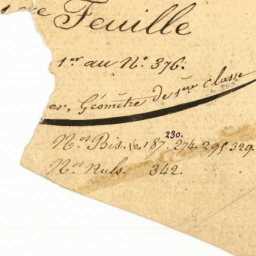 Feuille
1er au No. 376.
er, Géomètre de 1ère classe
230.
Nos. Bis. 187. 274. 291. 329.
Nos. Nuls. 342.